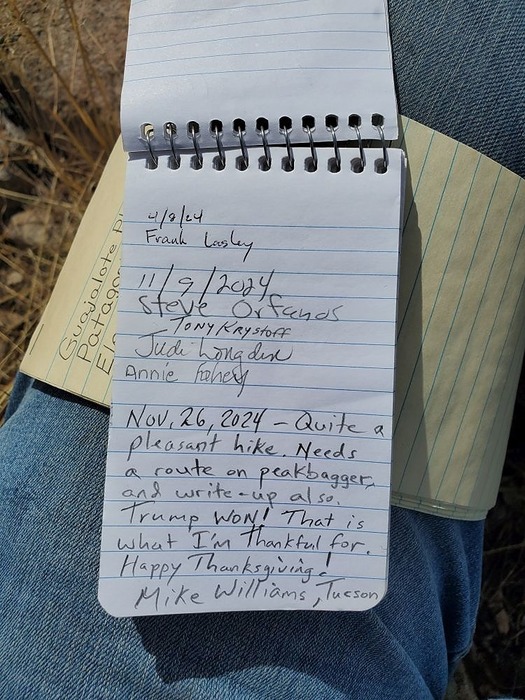 4/8/24
Frank Lasley
11/9/2024
Steve Orfanos
Tony Krystoff
Judi Longden
Annie Fahey
Nov, 26, 2024 – Quite a
pleasant hike. Needs
a route on peakbagger,
and write-up also.
Trump WON! That is
what I'm thankful for.
Happy Thanksgiving!
Mike Williams, Tucson
Guajalote
Patago
Ele